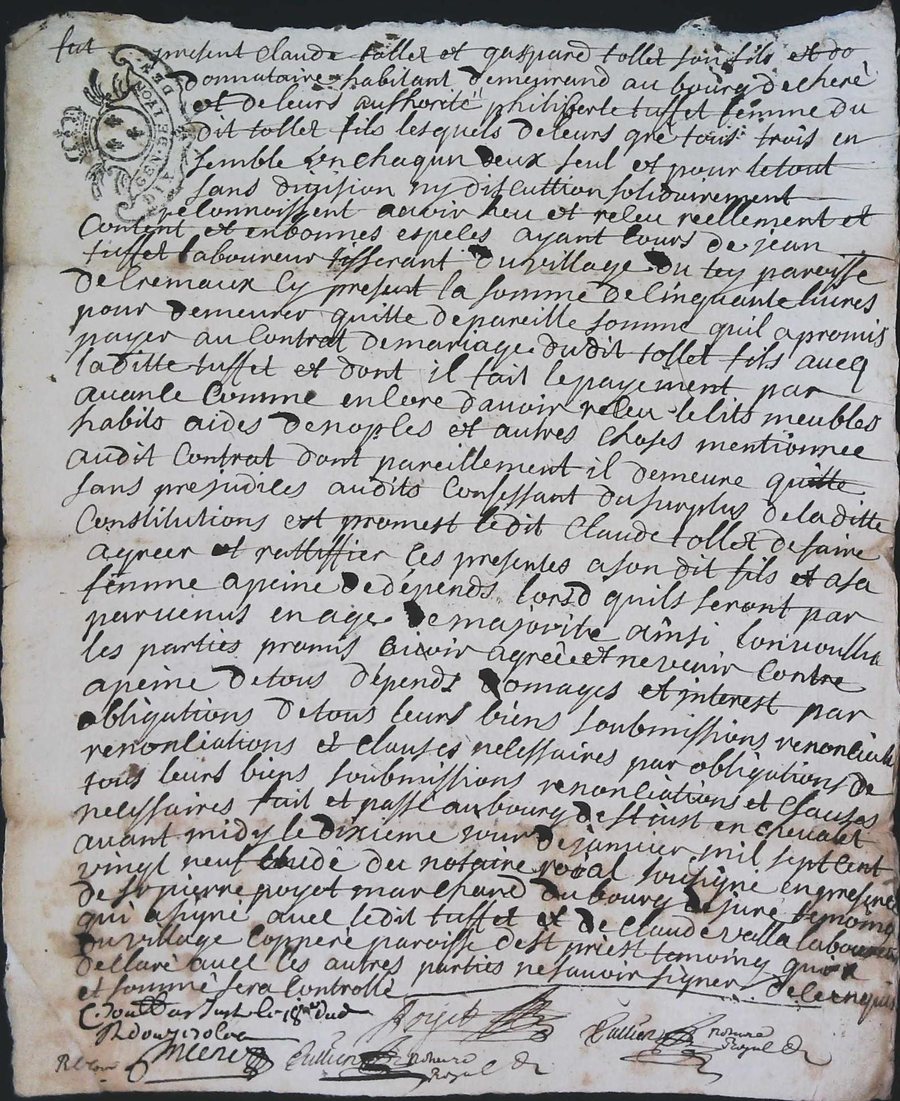 fut present Claude tollet et gaspard tollet son fils et do
donnataire habitant demeurand au bourg de cheré
et de leurs authorité philiberte tuffet femme du
dit tollet fils lesquels de leurs gré tous trois en
semble un chaqun deux seul et pour le tout
sans division ny discuttion solidairement
reconnoissent auoir heu et releu reellement et
Content et en bonnes espeles ayant cours de jean
tuffet laboureur tisserant du village du tey paroisse
de Cremaux Cy present la somme de Cinquante liures
pour demeurer quitte de pareille somme quil a promis
payer au Contrat de mariage dudit tollet fils auecq
la ditte tuffet et dont il fait le payement par
auance Comme encore dauoir releu le lits meubles
habits aides de noples et autres choses mentionnee
audit Contrat dont pareillement il demeure quitte
sans prejudices audits Confessant du surplus de la ditte
Constitutions et promest ledit Claude tollet de faire
agreer et rattiffier ces presentes a son dit fils et a sa
femme a peine de depends lorsd quils seront par
paruenus en age de majorite ainsi Conuoullu
les parties promis auoir agreé et ne venir Contre
a peine de tous dépends domages et interest par
obligations de tous leurs biens soubmissions renonciati
renonciations et clauses nelessaires par obligations de
tous leurs biens soubmissions renonciations et clauses
nelessaires fait et passé au bourg de st just en cheualet
auant midy le dixieme jour de januier mil sept cent
vingt neuf du notaire roial soûsigné en presence
de sr pierre poyet marchand du bourg de juré temoins
qui a signé auec ledit tuffet et de Claude valla laboureur
du village Copperé paroisse de st priest temoing qui a
dellaré auec les autres parties ne sauoir signer de ce enquis
et sommé sera Controllé
GENER DE LYON
Poyet
Cullier notaire Royal
Cullier notaire Royal